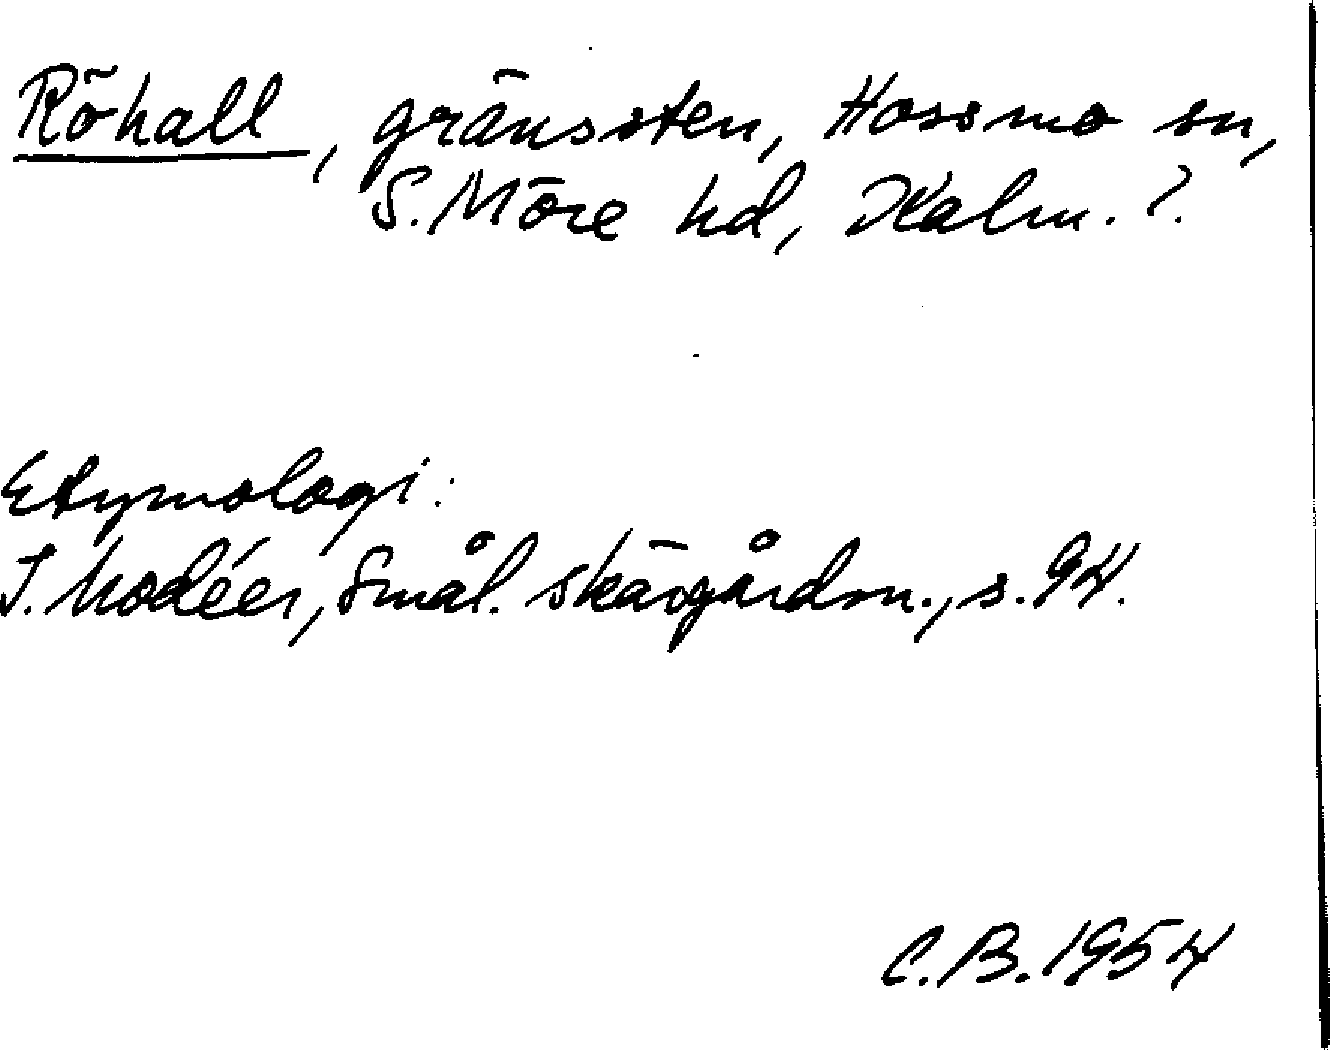 Röhall, gränssten, Hossmo sn,
S. Möre hd, Kalm. ?.
Etymologi:
I. Modéer, Smål. skärgårdsn., s. 94.
C.B. 1954